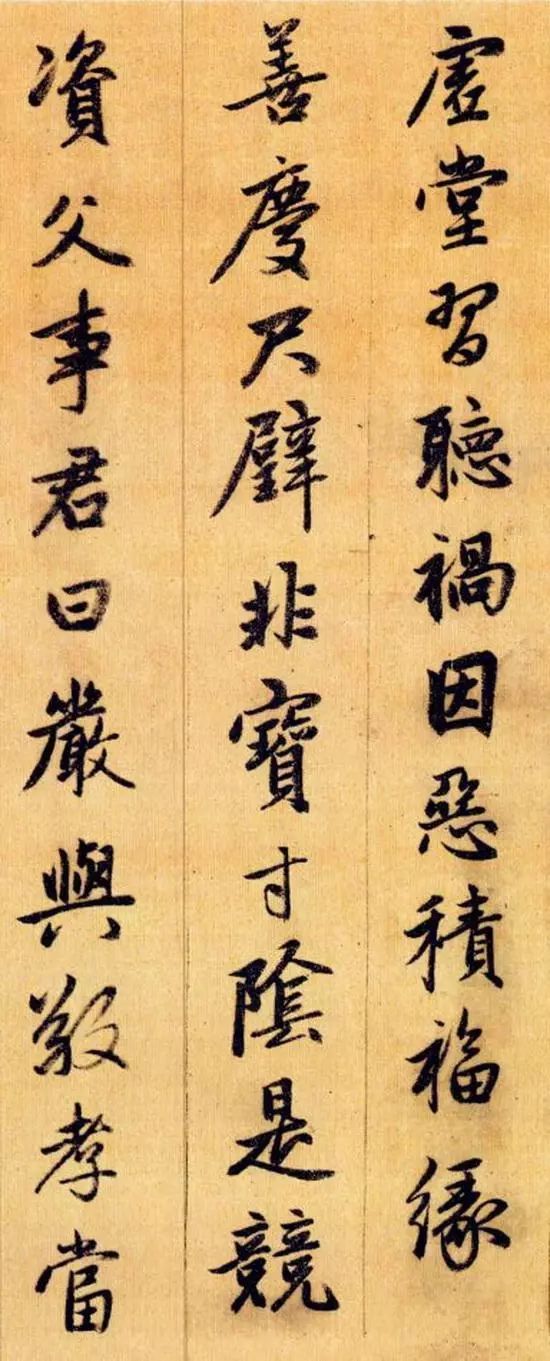 虛堂習聽禍因惡積福緣
善慶尺璧非寶寸陰是競
資父事君曰嚴與敬孝當